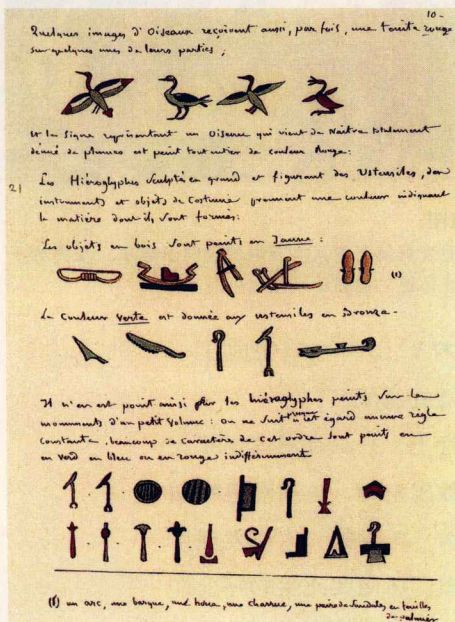 10-
Quelques images d'Oiseaux reçoivent aussi, par fois, une teinte rouge
sur quelques unes de leurs parties;
Et le signe représentant un Oiseau qui vient de Naitre totalement
dénué de plumes est peint tout entier de couleur Rouge:
2) Les Hiéroglyphes Sculptés en grand et figurant des Ustensiles, des
instruments et objets de Costume prennent une couleur indiquant
la matière dont ils sont formés:
Les objets en bois sont peints en Jaune:
(1)
La Couleur verte est donnée aux ustensiles en Bronze-
Il n'en est point ainsi pour les hiéroglyphes peints sur les
monuments d'un petit volume: on ne suit à cet égard aucune règle
constante. beaucoup de caractères de cet ordre sont peints en
en verd en bleu ou en rouge indifféremment
(1) un arc, une barque, une houe, une charrue, une paire de Sandales en feuilles
de palmier